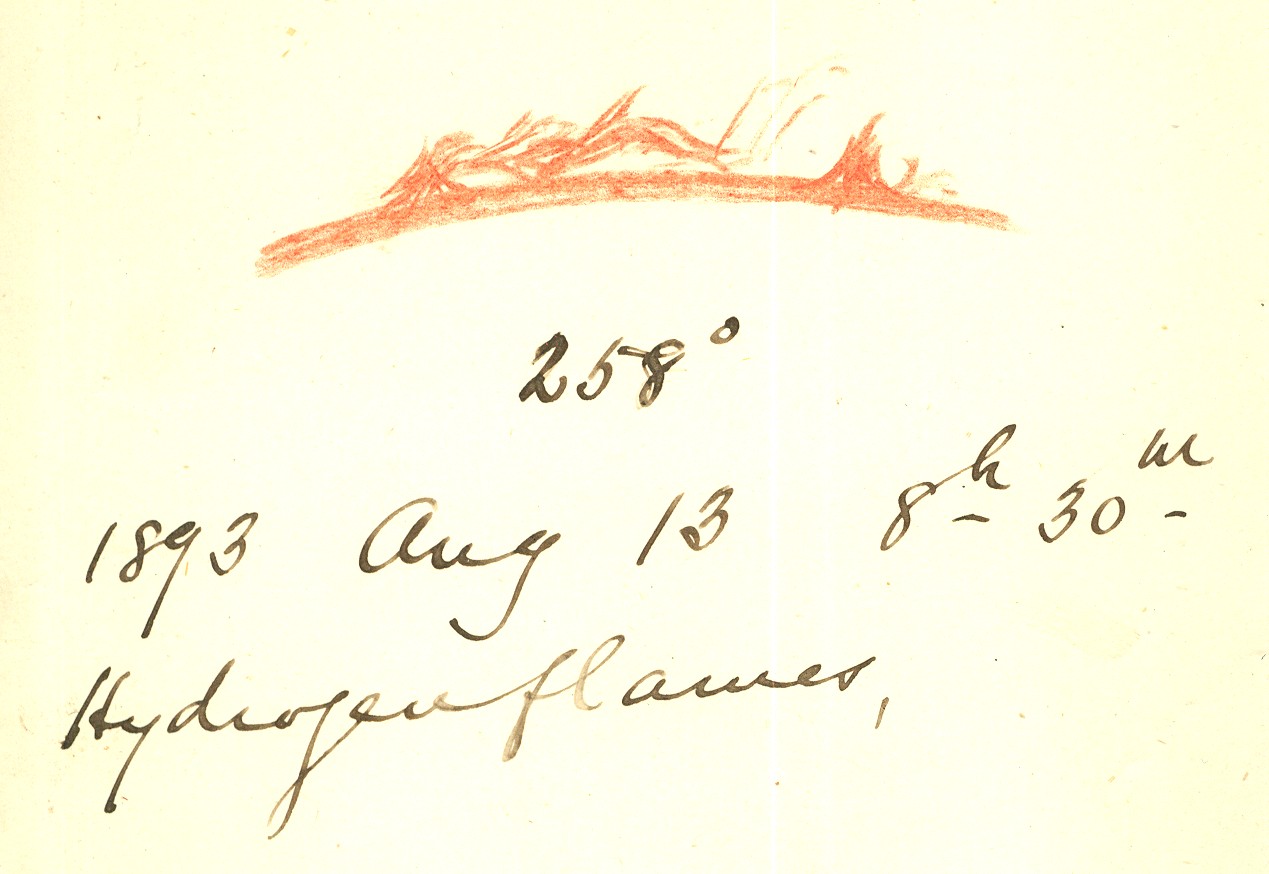 258°
1893 Aug 13 8h 30m
Hydrogen flames,